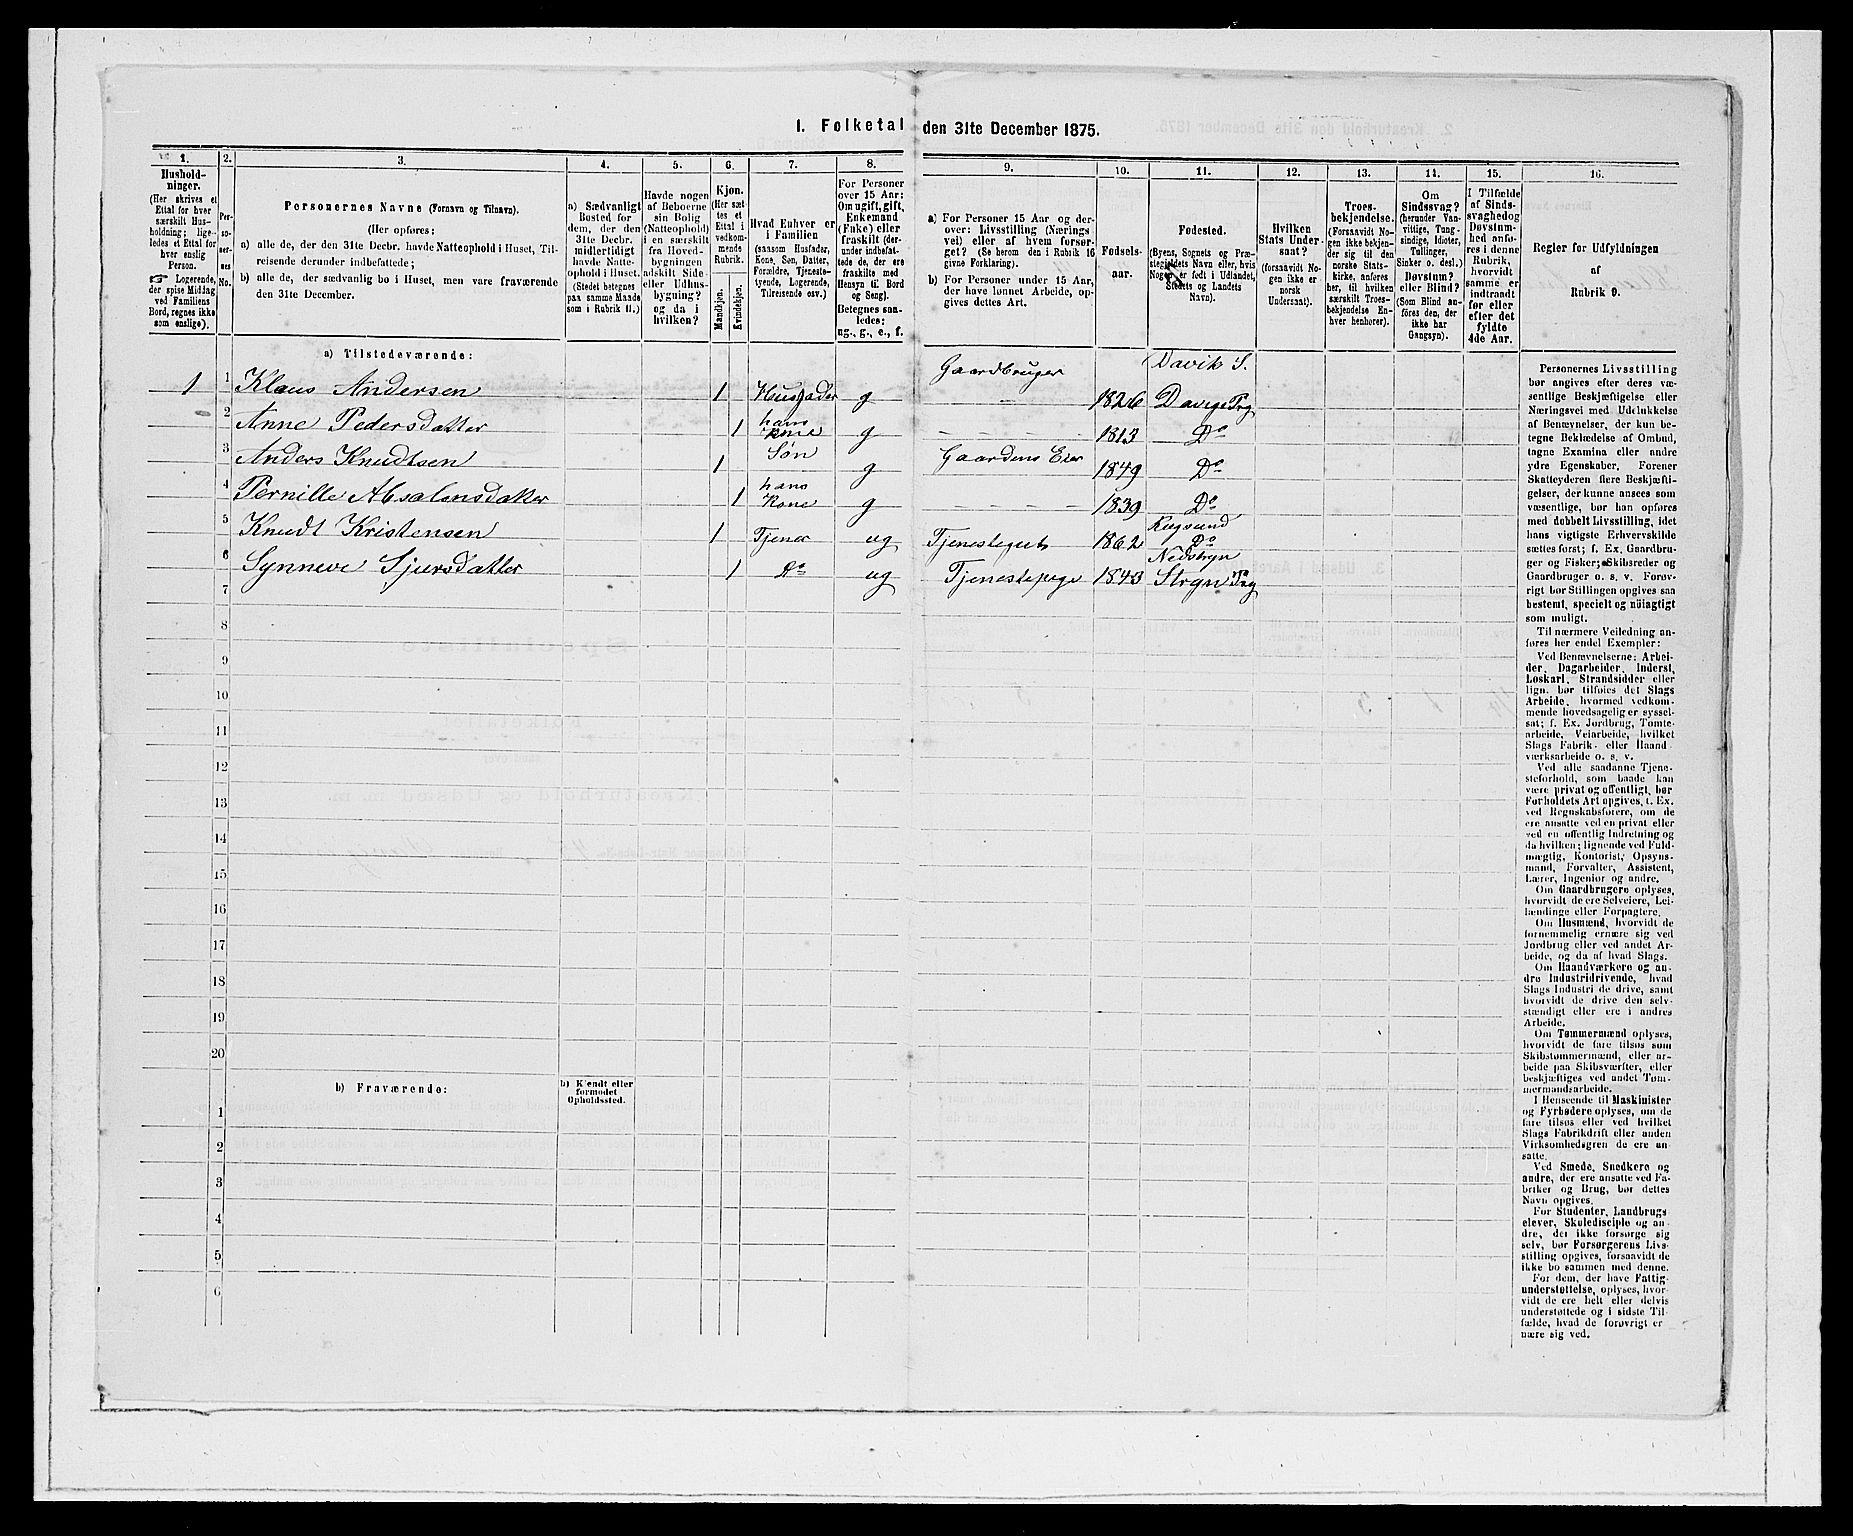 1. Folketal den 31te December 1875.
1.
2.
3.
4.
5.
6.
7.
8.
9.
10.
11.
12.
13.
14.
15.
16.
Hushold-
ninger.
(Her skrives et
Ettal for hver
særskilt Hus-
holdning; lige-
ledes et Ettal for
hver enslig
Person.
☞ Logerende,
der spise Middag
ved Familiens
Bord, regnes ikke
som enslige).
Per-
so-
ner-
nes
No.
Personernes Navne (Fornavn og Tilnavn).
(Her opføres:
a) alle de, der den 31te Decbr. havde Natteophold i Huset, Til-
reisende derunder indbefattede;
b) alle de, der sædvanlig bo i Huset, men vare fraværende
den 31te December.
a) Sædvanligt
Bosted for
dem, der den
31te Decbr.
midlertidigt
havde Natte-
ophold i Huset.
(Stedet betegnes
paa samme Maade
som i Rubrik 11.)
Havde nogen
af Beboerne
sin Bolig
(Natteophold)
i en særskilt
fra Hoved-
bygningen
adskilt Side-
eller Udhus-
bygning?
og da i
hvilken?
Kjøn.
(Her sæt-
tes et
Ettal i
vedkom-
mende
Rubrik.
Mandkjøn.
Kvindekjøn.
Hvad Enhver er
i Familien
(saasom Husfader,
Kone, Søn, Datter,
Forældre, Tjeneste-
tyende, Logerende,
Tilreisende osv.)
For Personer
over 15 Aar:
Om ugift, gift,
Enkemand
(Enke) eller
fraskilt (der-
under indbefat-
tede de, der ere
fraskilte med
Hensyn til Bord
og Seng).
Betegnes saa-
ledes:
ug., g., e., f.
a) For Personer 15 Aar og der-
over: Livsstilling (Nærings
vei) eller af hvem forsør-
get? (Se herom den i Rubrik 16
givne Forklaring).
b) For Personer under 15 Aar,
der have lønnet Arbeide, op-
gives dettes Art.
Fødsels-
aar.
Fødested.
(Byens, Sognets og Præ-
stegjeldets Navn eller, hvis
Nogen er født i Udlandet,
Stedets og Landets
Navn).
Hvilken
Stats Under-
saat?
(forsaavidt No-
gen ikke er
norsk
Undersaat).
Troes-
bekjendelse.
(Forsaavidt No-
gen ikke bekjen-
der sig til den
norske Stats-
kirke, anføres
her, til hvilken
særskilt Troes-
bekjendelse En-
hver henhører).
Om
Sindssvag?
(herunder Van-
vittige, Tung-
sindige, Idioter,
Tullinger,
Sinker o. desl.)
Døvstum?
eller Blind?
(Som Blind an-
føres den, der
ikke har
Gangsyn).
I Tilfælde
af Sinds-
svaghed og
Døvstum-
hed anfø-
res i denne
Rubrik,
hvorvidt
samme er
indtraadt
før eller
efter det
fyldte
4de Aar.
Regler for Udfyldningen
af
Rubrik 9.
a) Tilstedeværende:
1 1 Klaus Andersen 1 Husfader g Gaardbruger 1826 Davik S.
Davige Prg
2 Anne Pedersdatter 1 hans
Kone g 1813 Do
3 Anders Knudtsen 1 Søn g Gaardens Eier 1849 Do
4 Pernille Absalonsdatter 1 hans
Kone g 1839 Do
5 Knudt Kristensen 1 Tjener ug Tjenestegut 1862 Rugsund
Do
6 Synneve Sjursdatter 1 Do ug Tjenestepige 1843 Nedstryn
Stryn Prg
7
8
9
10
11
12
13
14
15
16
17
18
19
20
b) Fraværende:
b) Kjendt eller
formodet
Opholdssted.
1
2
3
4
5
6
Personernes Livsstilling
bør angives efter deres væ-
sentlige Beskjæftigelse eller
Næringsvei med Udelukkelse
af Benævnelser, der kun be-
tegne Beklædelse af Ombud,
tagne Examina eller andre
ydre Egenskaber. Forener
Skatteyderen flere Beskjæfti-
gelser, der kunne ansees som
væsentlige, bør han opføres
med dobbelt Livsstilling, idet
hans vigtigste Erhvervskilde
sættes først; f. Ex. Gaardbru-
ger og Fisker; Skibsreder og
Gaardbruger o. s. v. Forøv-
rigt bør Stillingen opgives saa
bestemt, specielt og nøiagtigt
som muligt.
Til nærmere Veiledning an-
føres her endel Exempler:
Ved Benævnelserne: Arbei-
der, Dagarbeider, Inderst,
Løskarl, Strandsidder eller
lign. bør tilføies det Slags
Arbeide, hvormed vedkom-
mende hovedsagelig er syssel-
sat; f. Ex. Jordbrug, Tomte-
arbeide, Veiarbeide, hvilket
Slags Fabrik- eller Haand
værksarbeide o. s. v.
Ved alle saadanne Tjene-
steforhold, som baade kan
være privat og offentligt, bør
Forholdets Art opgives, t. Ex.
ved Regnskabsførere, om de
ere ansatte ved en privat eller
ved en offentlig Indretning og
da hvilken; lignende ved Fuld-
mægtig, Kontorist, Opsyns-
mand, Forvalter, Assistent,
Lærer, Ingeniør og andre.
Om Gaardbrugere oplyses,
hvorvidt de ere Selveiere, Lei-
lændinge eller Forpagtere.
Om Husmænd, hvorvidt de
fornemmelig ernære sig ved
Jordbrug eller ved andet Ar-
beide, og da af hvad Slags.
Om Haandværkere og an-
dre Industridrivende, hvad
Slags Industri de drive, samt
hvorvidt de drive den selv-
stændigt eller ere i andres
Arbeide.
Om Tømmermænd oplyses,
hvorvidt de fare tilsøs som
Skibstømmermænd, eller ar-
beide paa Skibsværfter, eller
beskjæftiges ved andet Tøm-
mermandsarbeide.
I Henseende til Maskinister
og Fyrbødere oplyses, om de
fare tilsøs eller ved hvilket
Slags Fabrikdrift eller anden
Virksomhedsgren de ere an-
satte.
Ved Smede, Snedkere og
andre, der ere ansatte ved Fa-
briker og Brug, bør dettes
Navn opgives.
For Studenter, Landbrugs
elever, Skoledisciple og an-
dre, der ikke forsørge sig
selv, bør Forsørgerens Livs-
stilling opgives, forsaavidt de
ikke bo sammen med denne.
For dem, der have Fattig-
understøttelse, oplyses, hvor-
vidt de ere helt eller delvis
understøttede og i sidste Til-
fælde, hvad de forøvrigt er
nære sig ved.